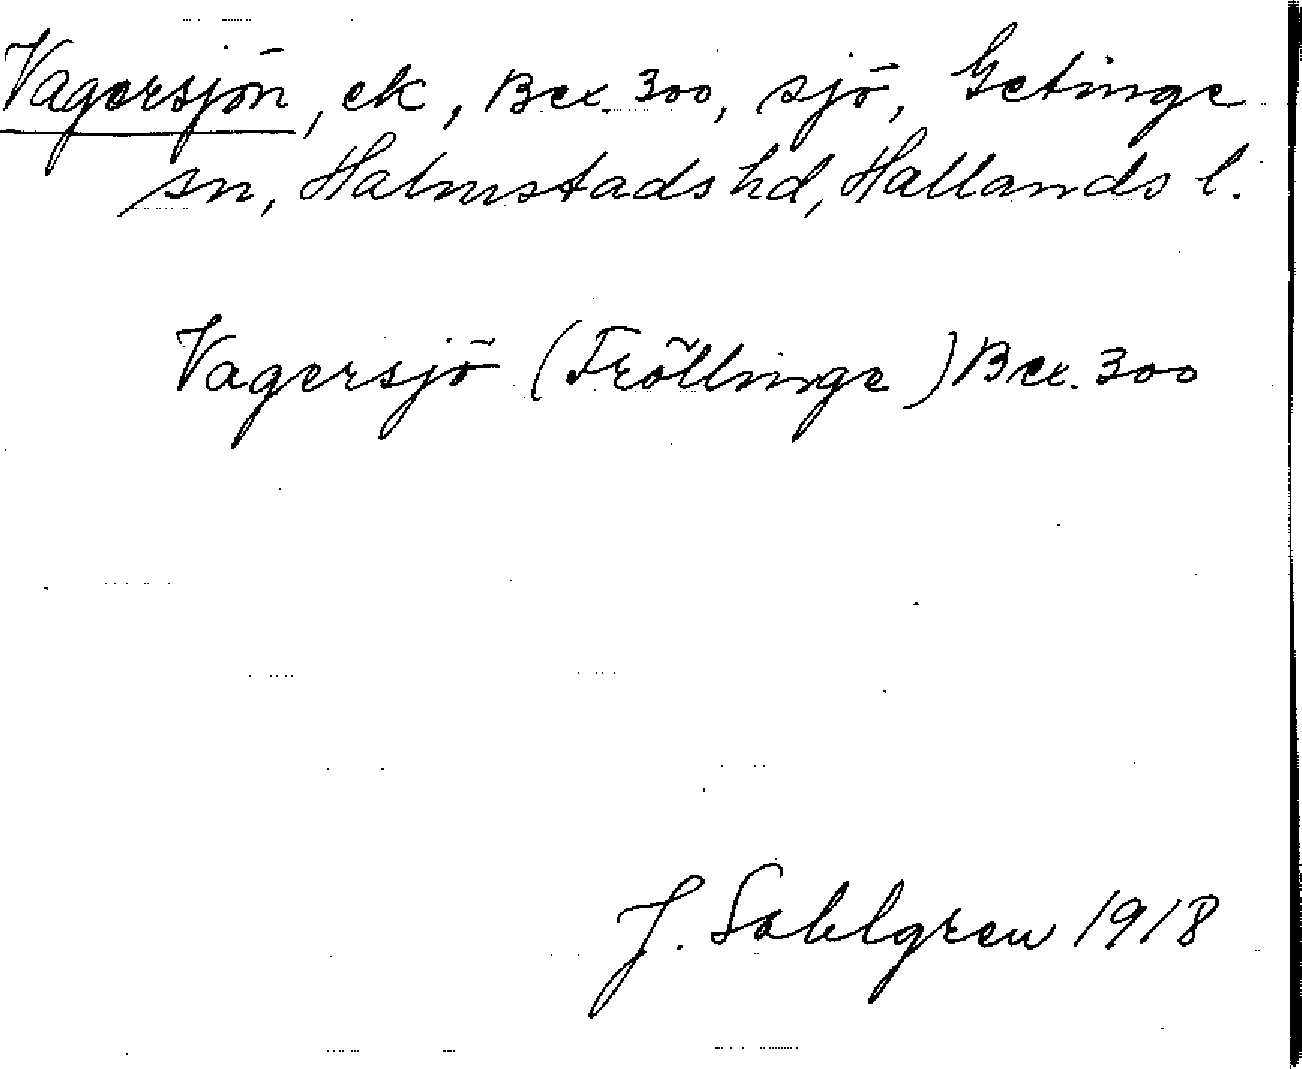 Vagersjön, ek, Bex. 300, sjö, Getinge
sn, Halmstads hd, Hallands l.
Vagersjö (Fröllinge) Bex. 300
J. Sahlgren 1918